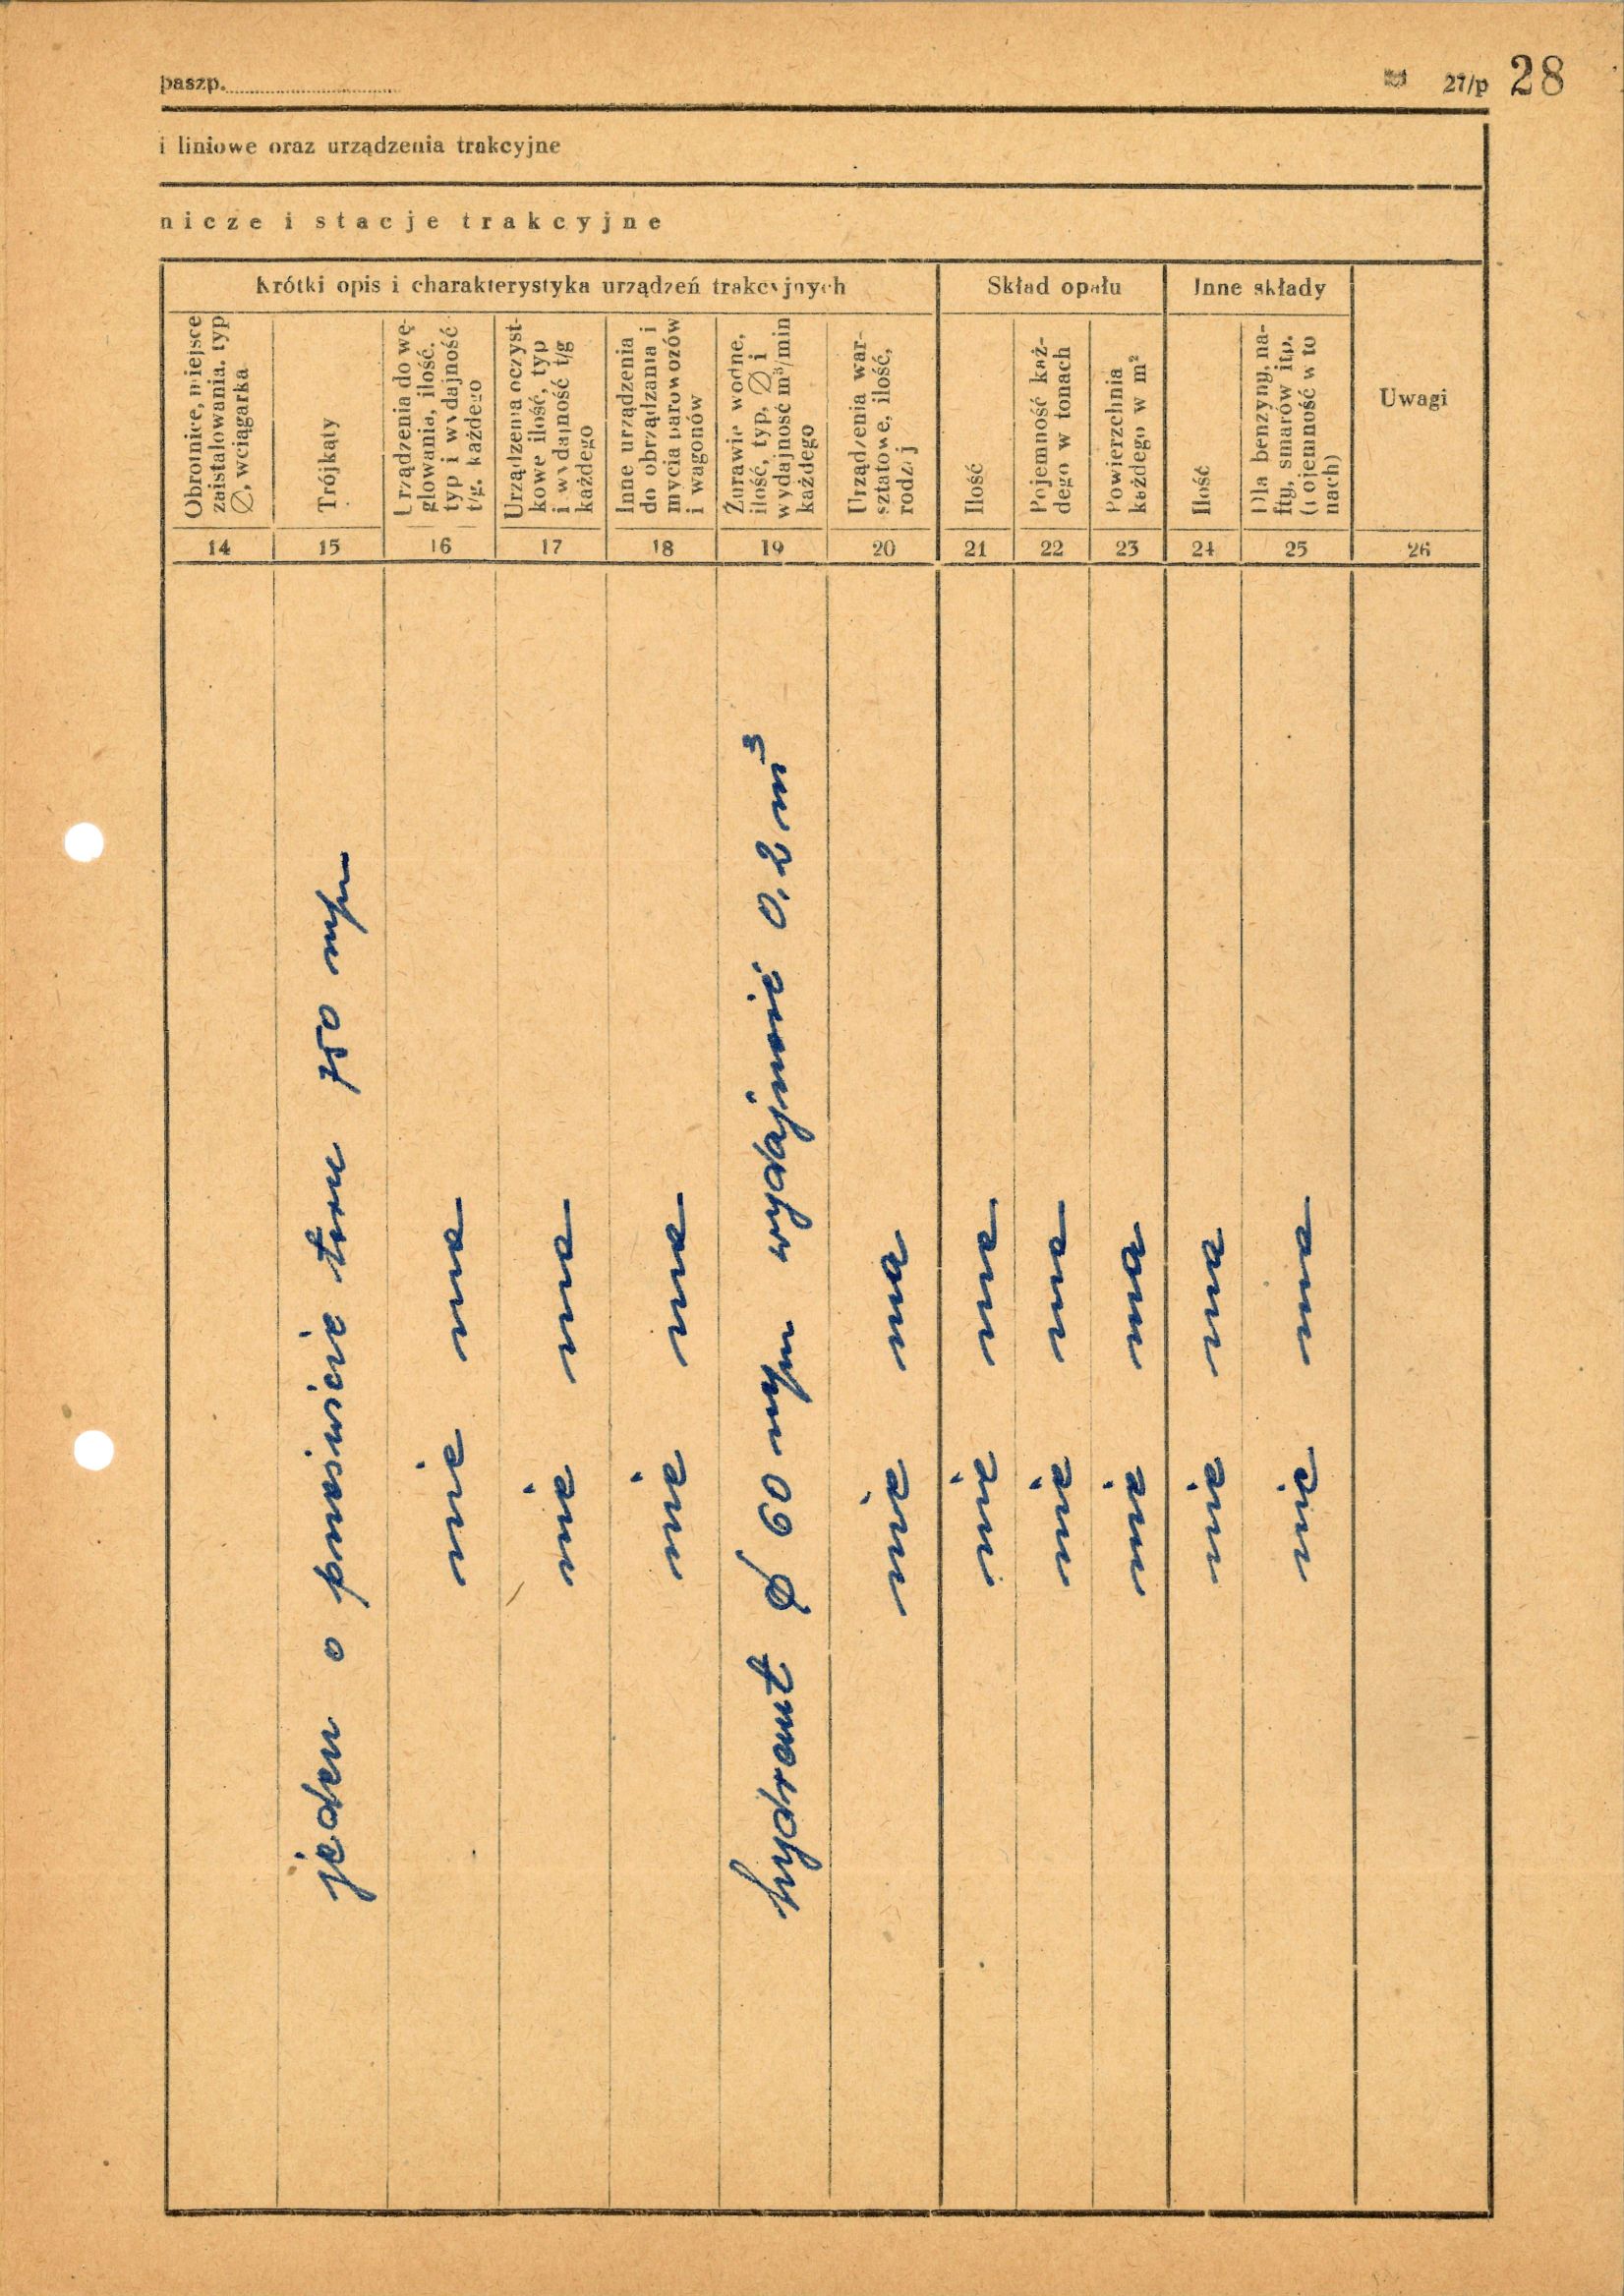 paszp.
27/p 28
i liniowe oraz urządzenia trakcyjne
nicze i stacje trakcyjne
Krótki opis i charakterystyka urządzeń trakcyjnych
Skład opału
Inne składy
Uwagi
Obrotnice, miejsce
zaistalowania, typ
∅, wciągarka
Trójkąty
Urządzenia do wę-
glowania, ilość,
typ i wydajność
t/g. każdego
Urządzenia oczyst-
kowe ilość, typ
i wydajność t/g
każdego
Inne urządzenia
do obrządzania i
mycia parowozów
i wagonów
Żurawie wodne,
ilość, typ, ∅ i
wydajność m³/min
każdego
Urządzenia war-
sztatowe, ilość,
rodzaj
Ilość
Pojemność każ-
dego w tonach
Powierzchnia
każdego w m²
Ilość
Dla benzyny, na-
fty, smarów itp.
(pojemność w to
nach)
14 15 16 17 18 19 20 21 22 23 24 25 26
jeden o prześwicie toru 750 m/m
nie ma
nie ma
nie ma
hydrant ∅ 60 m/m wydajność 0,2 m³
nie ma
nie ma
nie ma
nie ma
nie ma
nie ma